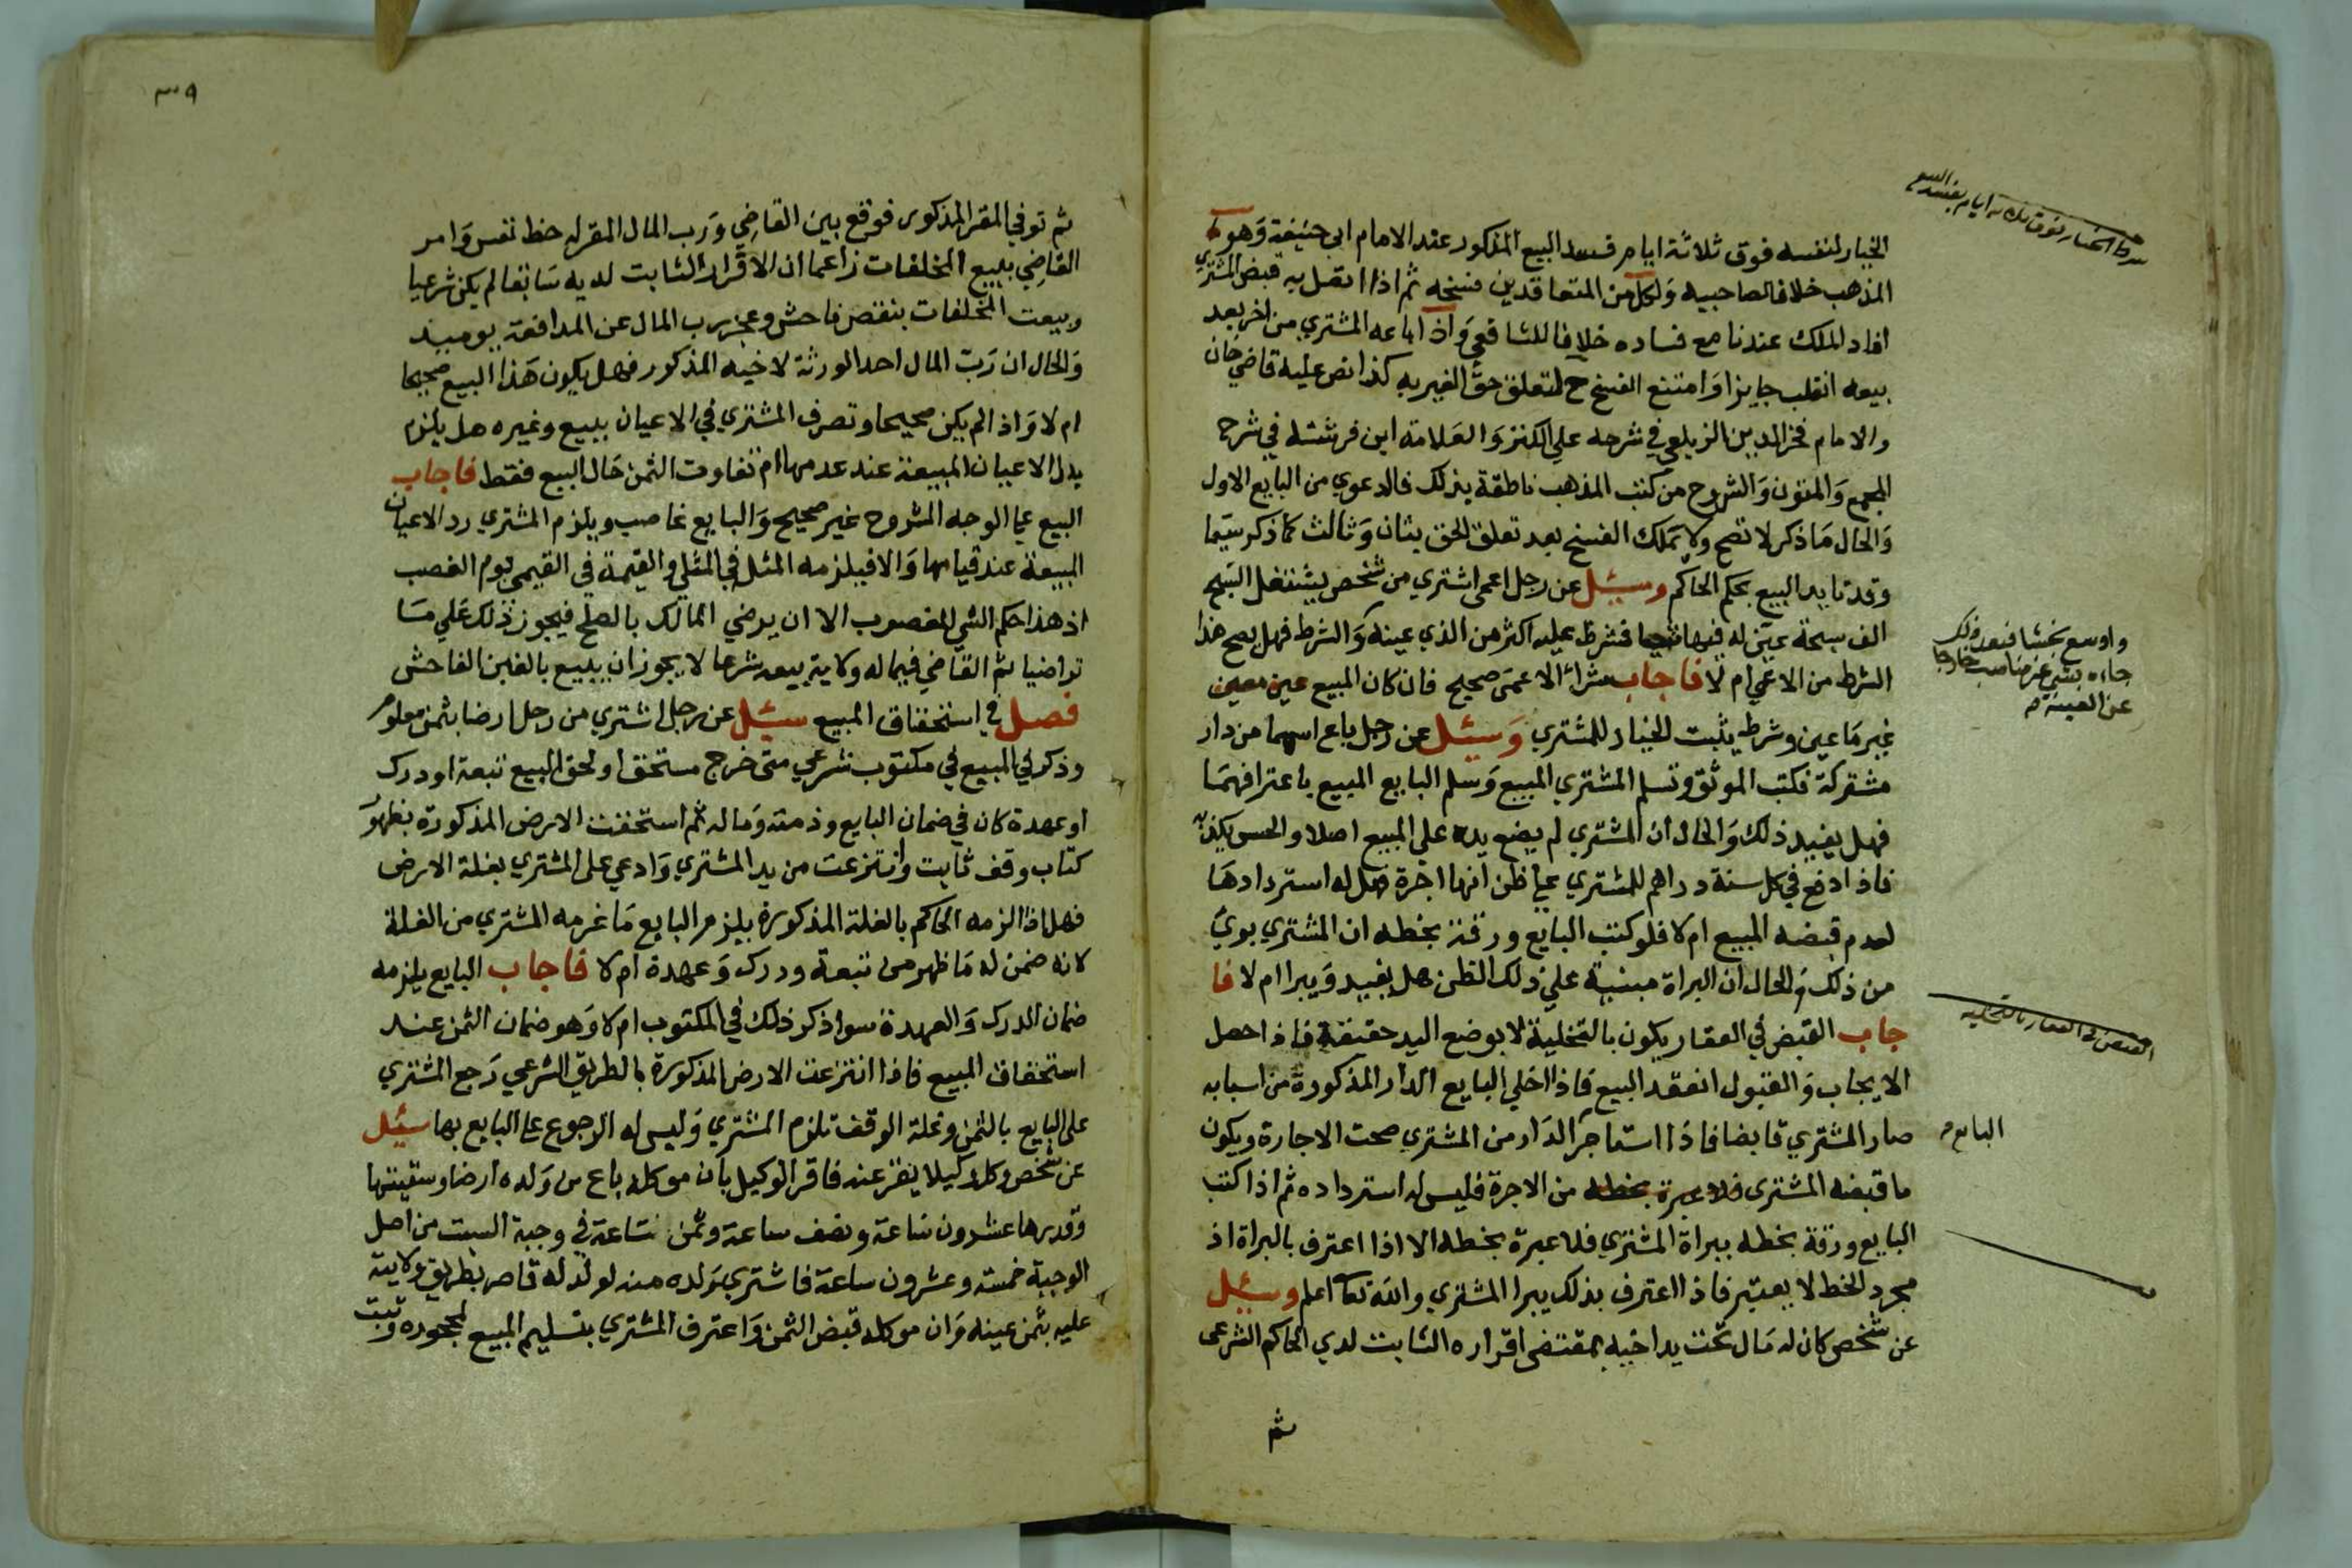 الخيار لنفسه فوق ثلاثة ايام فسد البيع المذكور عند الامام ابى حنيفة وهو
المذهب خلافا لصاحبيه ولكل من المتعاقدين فسخه ثم اذا اتصل به قبض المشتري
افاد الملك عندنا مع فساده خلافا للشافعي واذا اباعه المشتري من اخر بعد
بيعه انقلب جايزا وامتنع الفسخ ح لتعلق حق الغير به كذا نص عليه قاضي خان
والامام فخر الدين الزيلعي في شرحه علي الكنز والعلامة ابن فرشته في شرح
المجمع والمتون والشروح من كتب المذهب ناطقة بذلك فالدعوي من البايع الاول
والحال ما ذكر لا تصح ولا تملك الفسخ بعد تعلق الحق بثان وثالث كما ذكر سيما
وقد تايد البيع بحكم الحاكم وسئل عن رجل اعمى اشتري من شخص يشتغل السبح
الف سبحة عين له فيها فشرط عليه اكثر من الذي عينه والشرط فهل يصح هذا
الشرط من الاعمي ام لا فاجاب شراء الاعمى صحيح فان كان المبيع عين معين
غير ما عين وشرط يثبت الخيار للمشتري وسئل عن رجل باع اسهما من دار
مشتركة فكتب الموثق وتسلم المشتري المبيع وسلم البايع المبيع باعترافهما
فهل يفيد ذلك والحال ان المشتري لم يضع يده على المبيع اصلا والحس يكذبه
فاذا دفع في كل سنة دراهم للمشتري علي ظن انها اجرة هل له استردادها
لعدم قبضه المبيع ام لا فلو كتب البايع ورقة بخطه ان المشتري بري
من ذلك والحال ان البراة مبنية علي ذلك الظن هل يفيد ويبرا ام لا فا
جاب القبض في العقار يكون بالتخلية لا بوضع اليد حقيقة فاذا حصل
الايجاب والقبول انعقد البيع فاذا اخلي البايع الدار المذكورة من اسبابه
صار المشتري قابضا فاذا استاجر الدار من المشتري صحت الاجارة ويكون
ما قبضه المشتري فلا عبرة بخطه من الاجرة فليس له استرداده ثم اذا كتب
البايع ورقة بخطه ببراة المشتري فلا عبرة بخطه الا اذا اعترف بالبراة اذ
مجرد الخط لا يعتبر فاذا اعترف بذلك يبرا المشتري والله تعا اعلم وسئل
عن شخص كان له مال تحت يد اخيه بمقتضى اقراره الثابت لدي الحاكم الشرعى
ثم
شرط الخيار فوق ثلاثة ايام يفسد البيع
فبعد ذلك
جاءه بشي غير مناسب خارجا
عن العينة
القبض في العقار بالتخلية
البايع
٣٩
ثم توفي المقر المذكور فوقع بين القاضي ورب المال المقر له حظ نفس وامر
القاضي ببيع المخلفات زاعما ان الاقرار الثابت لديه سابقا لم يكن شرعيا
وبيعت المخلفات بنقص فاحش وعجز رب المال عن المدافعة يوميذ
والحال ان رب المال احد الورثة لاخيه المذكور فهل يكون هذا البيع صحيحا
ام لا واذا لم يكن صحيحا وتصرف المشتري في الاعيان ببيع وغيره هل يلزم
بدل الاعيان المبيعة عند عدمها ام تفاوت الثمن حال البيع فقط فاجاب
البيع علي الوجه المشروح غير صحيح والبايع غاصب ويلزم المشتري رد الاعيان
المبيعة عند قيامها والا فيلزمه المثل في المثلي والقيمة في القيمى يوم الغصب
اذ هذا حكم الشي المغصوب الا ان يرضي المالك بالصلح فيجوز ذلك علي ما
تراضيا ثم القاضي فيما له ولاية بيعه شرعا لا يجوز ان يبيع بالغبن الفاحش
فصل في استحقاق المبيع سئل عن رجل اشتري من رجل ارضا بثمن معلوم
وذكر في المبيع في مكتوب شرعي متى خرج مستحق او لحق المبيع تبعة او درك
او عهدة كان في ضمان البايع وذمته وماله ثم استحقت الارض المذكورة بظهور
كتاب وقف ثابت وانتزعت من يد المشتري وادعي على المشتري بغلة الارض
فهل اذا الزمه الحاكم بالغلة المذكورة يلزم البايع ما غرمه المشتري من الغلة
لانه ضمن له ما ظهر من تبعة ودرك وعهدة ام لا فاجاب البايع يلزمه
ضمان الدرك والعهدة سوا ذكر ذلك في المكتوب ام لا وهو ضمان الثمن عند
استحقاق المبيع فاذا انتزعت الارض المذكورة بالطريق الشرعي رجع المشتري
على البايع بالثمن وغلة الوقف تلزم المشتري وليس له الرجوع علي البايع بها سئل
عن شخص وكل وكيلا يقر عنه فاقر الوكيل بان موكله باع من ولده ارضا وسقيتها
وقدرها عشرون ساعة ونصف ساعة وثمن ساعة في وجبة السبت من اصل
الوجبة خمسة وعشرون ساعة فاشتري ولده منه لولد له قاصر بطريق ولايته
عليه بثمن عينه وان موكله قبض الثمن واعترف المشتري بتسليم المبيع لمحجوره وثبت